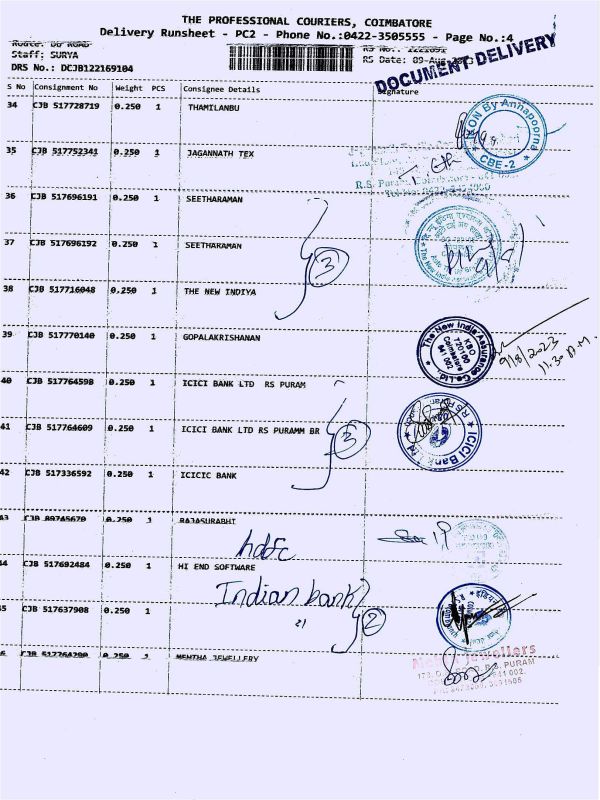 THE PROFESSIONAL COURIERS, COIMBATORE
Delivery Runsheet - PC2 - Phone No.:0422-3505555 - Page No.:4
Staff: SURYA
DRS No.: DCJB122169104
RS Date: 09-Aug-2023
DOCUMENT DELIVERY
S No Consignment No Weight PCS Consignee Details Signature
34 CJB 517728719 0.250 1 THAMILANBU
ON By Annapoorna
CBE-2
35 CJB 517752341 0.250 1 JAGANNATH TEX
R.S. Puram
36 CJB 517696191 0.250 1 SEETHARAMAN
37 CJB 517696192 0.250 1 SEETHARAMAN
3
38 CJB 517716048 0.250 1 THE NEW INDIYA
39 CJB 517770140 0.250 1 GOPALAKRISHANAN
The New India Assurance Co. Ltd.
KBO
720100
Coimbatore
641 002
9/8/2023
11.30 A.M.
40 CJB 517764598 0.250 1 ICICI BANK LTD RS PURAM
41 CJB 517764609 0.250 1 ICICI BANK LTD RS PURAMM BR
3
ICICI Bank
42 CJB 517336592 0.250 1 ICICIC BANK
43 CJB 89745670 0.250 1 RAJASURABHI
hdfc
44 CJB 517692484 0.250 1 HI END SOFTWARE
Indian bank
45 CJB 517637908 0.250 1
2
0.250 1 MEHTHA JEWELLERY
Jewellers
R.S. PURAM
641 002.